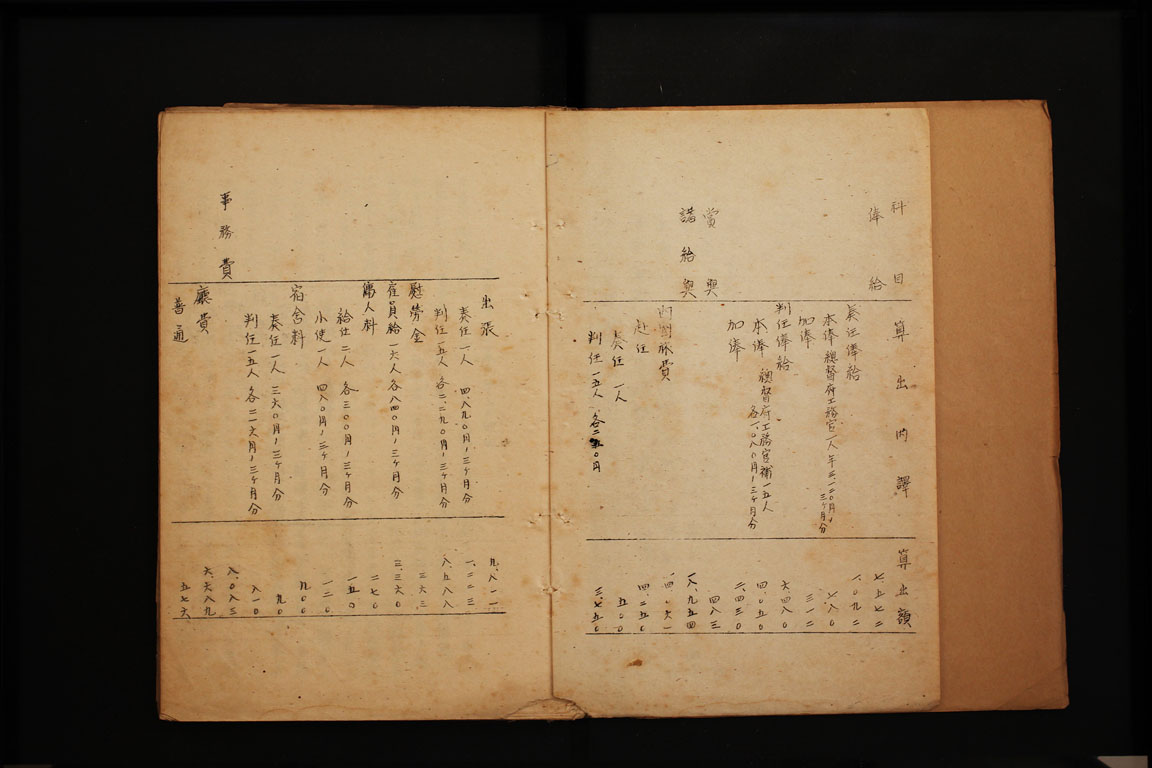 科目 算出内譯 算出額
俸給 七、五七二
奏任俸給 一、〇九二
本俸 總督府工務官一人年三、一二〇円ノ三ヶ月分 七八〇
加俸 三一二
判任俸給 六四八〇
本俸 總督府工務官補一五人各一、〇八〇円ノ三ヶ月分 四、〇五〇
加俸 二、四三〇
賞與 四八三
諸給與 一八、九五四
内國旅費
赴任 四、二五〇
奏任 一人 五〇〇
判任 一五人 各二五〇円 三、七五〇
出張 九、八一一
奏任 一人 四、八九〇円ノ三ヶ月分 一、二二三
判任 一五人 各二、二九〇円ノ三ヶ月分 八、五八八
慰勞金 三六三
雇員給 一六人各八四〇円ノ三ヶ月分 三、三六〇
傭人料 二七〇
給仕 二人 各三〇〇円ノ三ヶ月分 一五〇
小使 一人 四八〇円ノ三ヶ月分 一二〇
宿舎料 九〇〇
奏任 一人 三六〇円ノ三ヶ月分 九〇
判任 一五人 各二一六円ノ三ヶ月分 八一〇
事務費 八、〇八三
廳費 六、六八九
普通 五七六